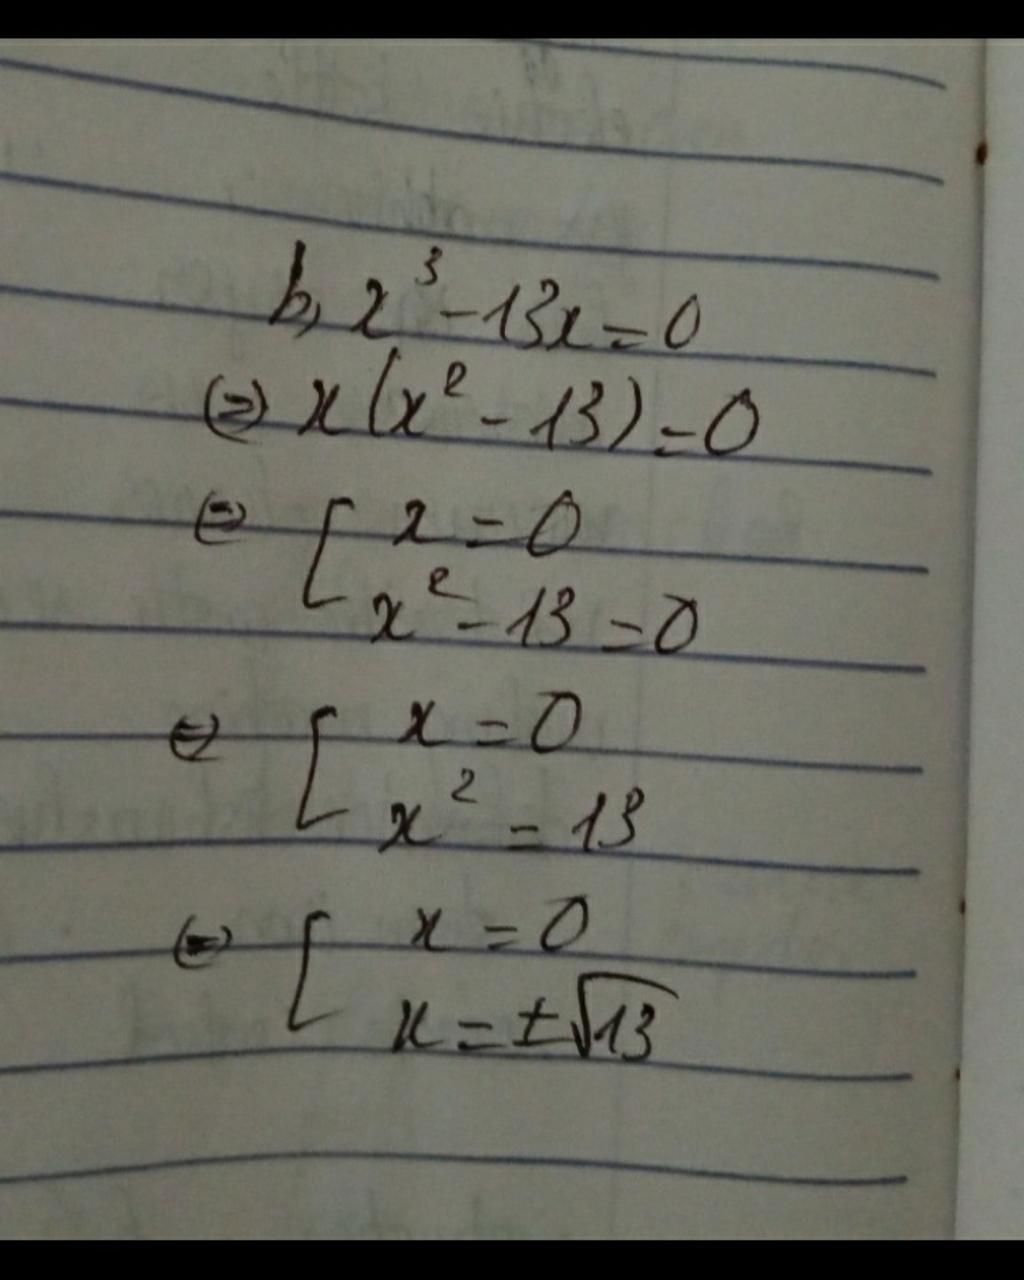 b, x³ - 13x = 0
⇔ x(x² - 13) = 0
⇔ [ x = 0
x² - 13 = 0
⇔ [ x = 0
x² = 13
⇔ [ x = 0
x = ±√13